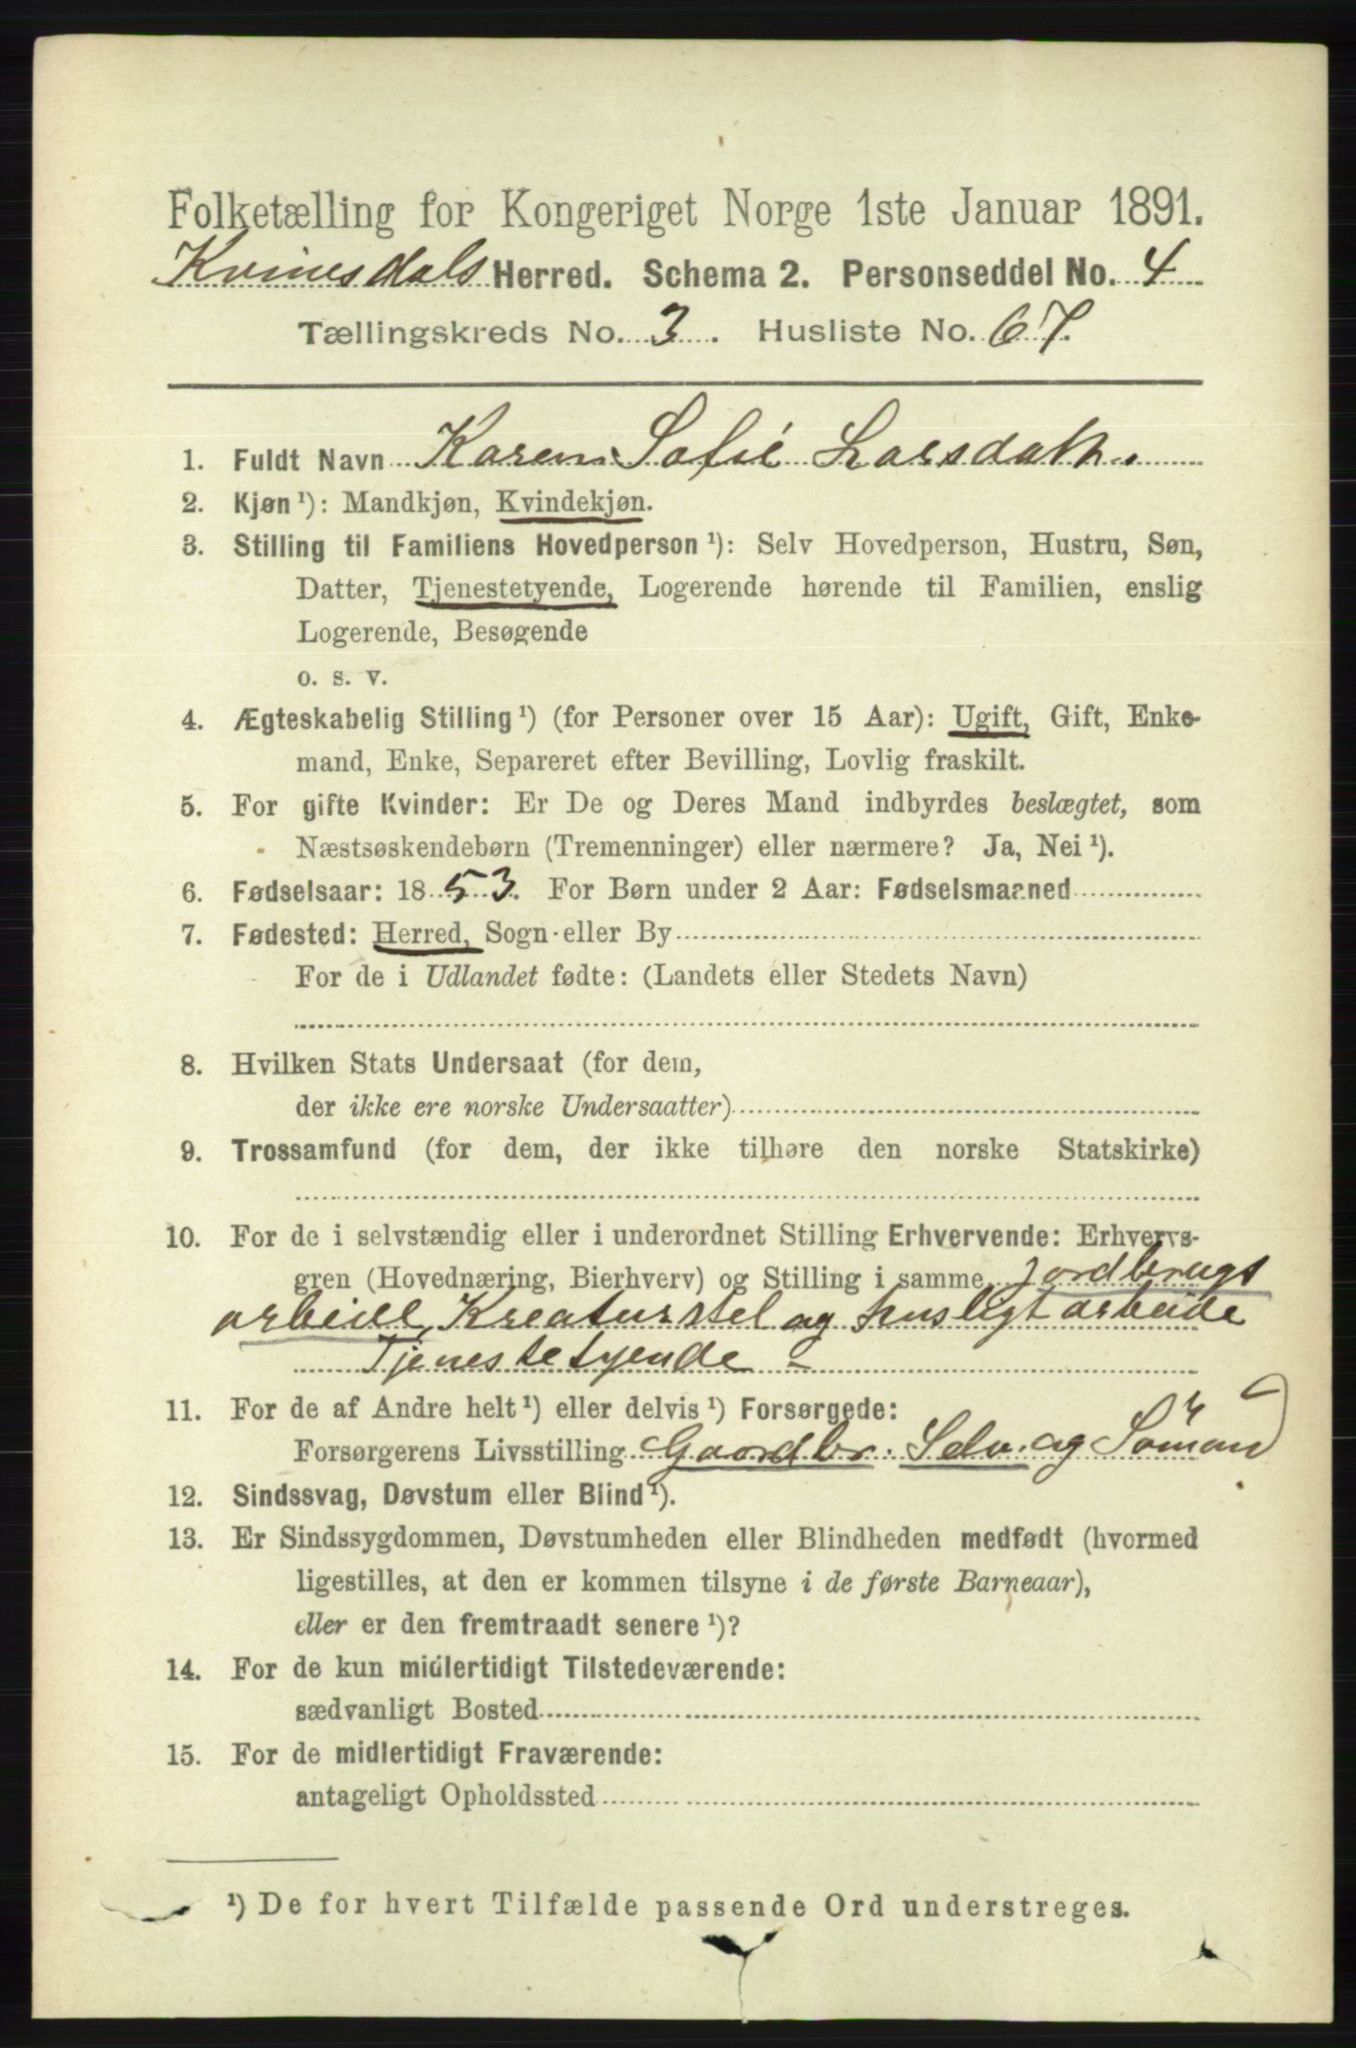 Folketælling for Kongeriget Norge 1ste Januar 1891.
Kvinesdals Herred. Schema 2. Personseddel No. 4
Tællingskreds No. 3. Husliste No. 67.
1. Fuldt Navn Karen Sofie Larsdatt.
2. Kjøn ¹): Mandkjøn, Kvindekjøn.
3. Stilling til Familiens Hovedperson ¹): Selv Hovedperson, Hustru, Søn,
Datter, Tjenestetyende, Logerende hørende til Familien, enslig
Logerende, Besøgende
o. s. v.
4. Ægteskabelig Stilling ¹) (for Personer over 15 Aar): Ugift, Gift, Enke-
mand, Enke, Separeret efter Bevilling, Lovlig fraskilt.
5. For gifte Kvinder: Er De og Deres Mand indbyrdes beslægtet, som
Næstsøskendebørn (Tremenninger) eller nærmere? Ja, Nei ¹).
6. Fødselsaar: 1853. For Børn under 2 Aar: Fødselsmaaned
7. Fødested: Herred, Sogn eller By
For de i Udlandet fødte: (Landets eller Stedets Navn)
8. Hvilken Stats Undersaat (for dem,
der ikke ere norske Undersaatter)
9. Trossamfund (for dem, der ikke tilhøre den norske Statskirke)
10. For de i selvstændig eller i underordnet Stilling Erhvervende: Erhvervs-
gren (Hovednæring, Bierhverv) og Stilling i samme Jordbrugs
arbeide, Kreaturstel og husligt arbeide
Tjenestetyende -
11. For de af Andre helt ¹) eller delvis ¹) Forsørgede:
Forsørgerens Livsstilling Gaardbr. Selv. og Sömand
12. Sindssvag, Døvstum eller Blind ¹).
13. Er Sindssygdommen, Døvstumheden eller Blindheden medfødt (hvormed
ligestilles, at den er kommen tilsyne i de første Barneaar),
eller er den fremtraadt senere ¹)?
14. For de kun midlertidigt Tilstedeværende:
sædvanligt Bosted
15. For de midlertidigt Fraværende:
antageligt Opholdssted
¹) De for hvert Tilfælde passende Ord understreges.